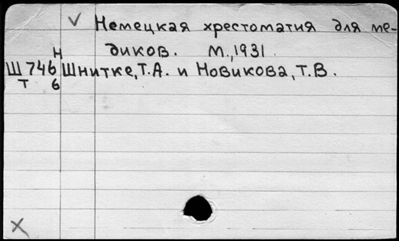 ✓ Немецкая хрестоматия для ме-
диков. М.,1931.
Н
Ш 746 Шнитке,Т.А. и Новикова,Т.В.
Т 6
X